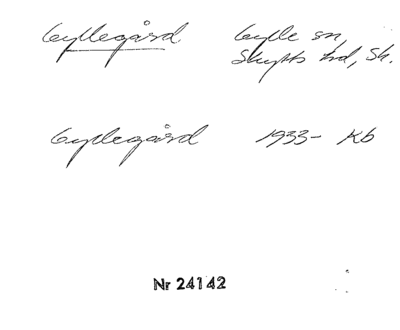 Gyllegård Gylle sn,
Skytts hd, Sk.
Gyllegård 1933- Kb
Nr 24142